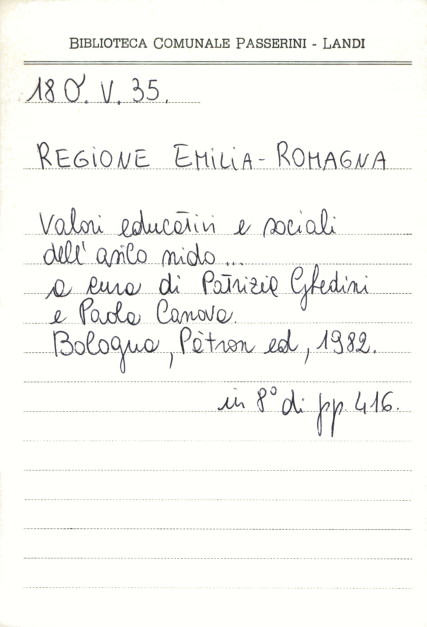 BIBLIOTECA COMUNALE PASSERINI - LANDI
18 O'. V. 35.
REGIONE EMILIA-ROMAGNA
Valori educativi e sociali
dell'asilo nido...
a cura di Patrizia Ghedini
e Paola Canova.
Bologna, Pàtron ed, 1982.
in 8° di pp. 416.